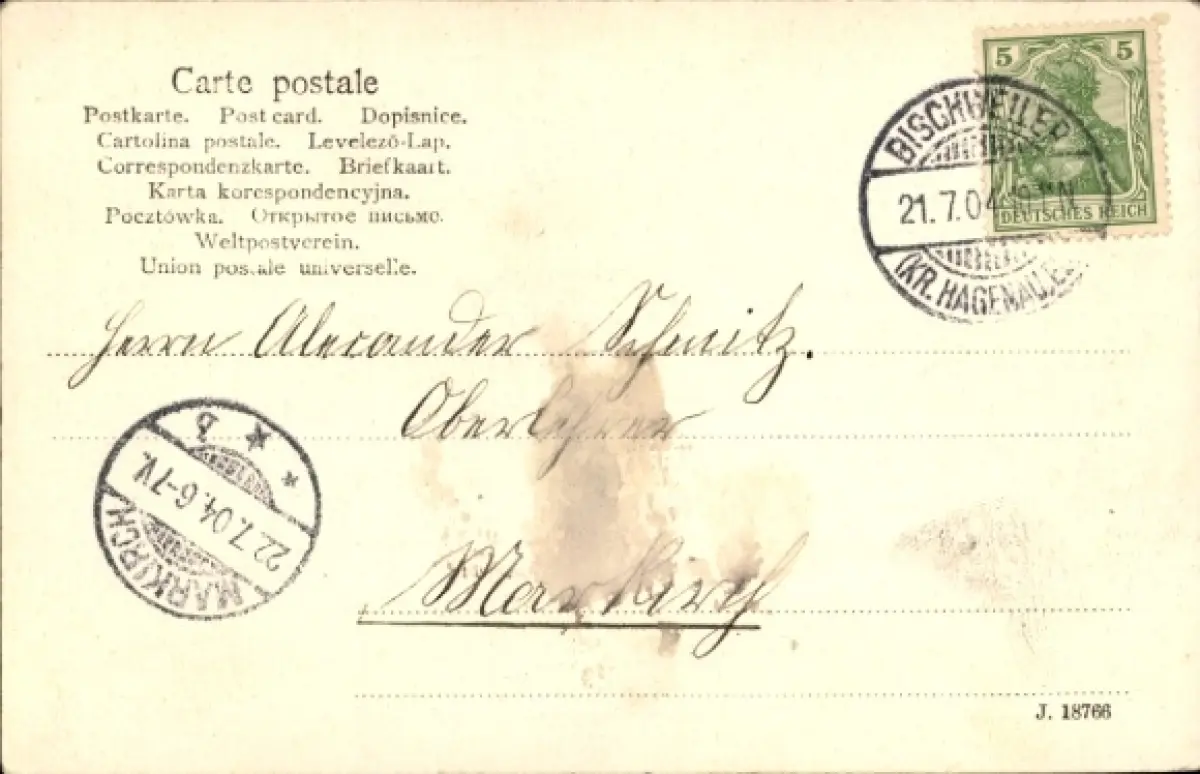 Carte postale
Postkarte. Post card. Dopisnice.
Cartolina postale. Levelező-Lap.
Correspondenzkarte. Briefkaart.
Karta korespondencyjna.
Pocztówka. Открытое письмо.
Weltpostverein.
Union postale universelle.
5 5
DEUTSCHES REICH
BISCHWEILER
21.7.04
(KR. HAGENAU).E
Herrn Alexander Schmitz.
Oberlehrer
Markirch
MARKIRCH.
22.7.04. 6-7V.
b
J. 18766